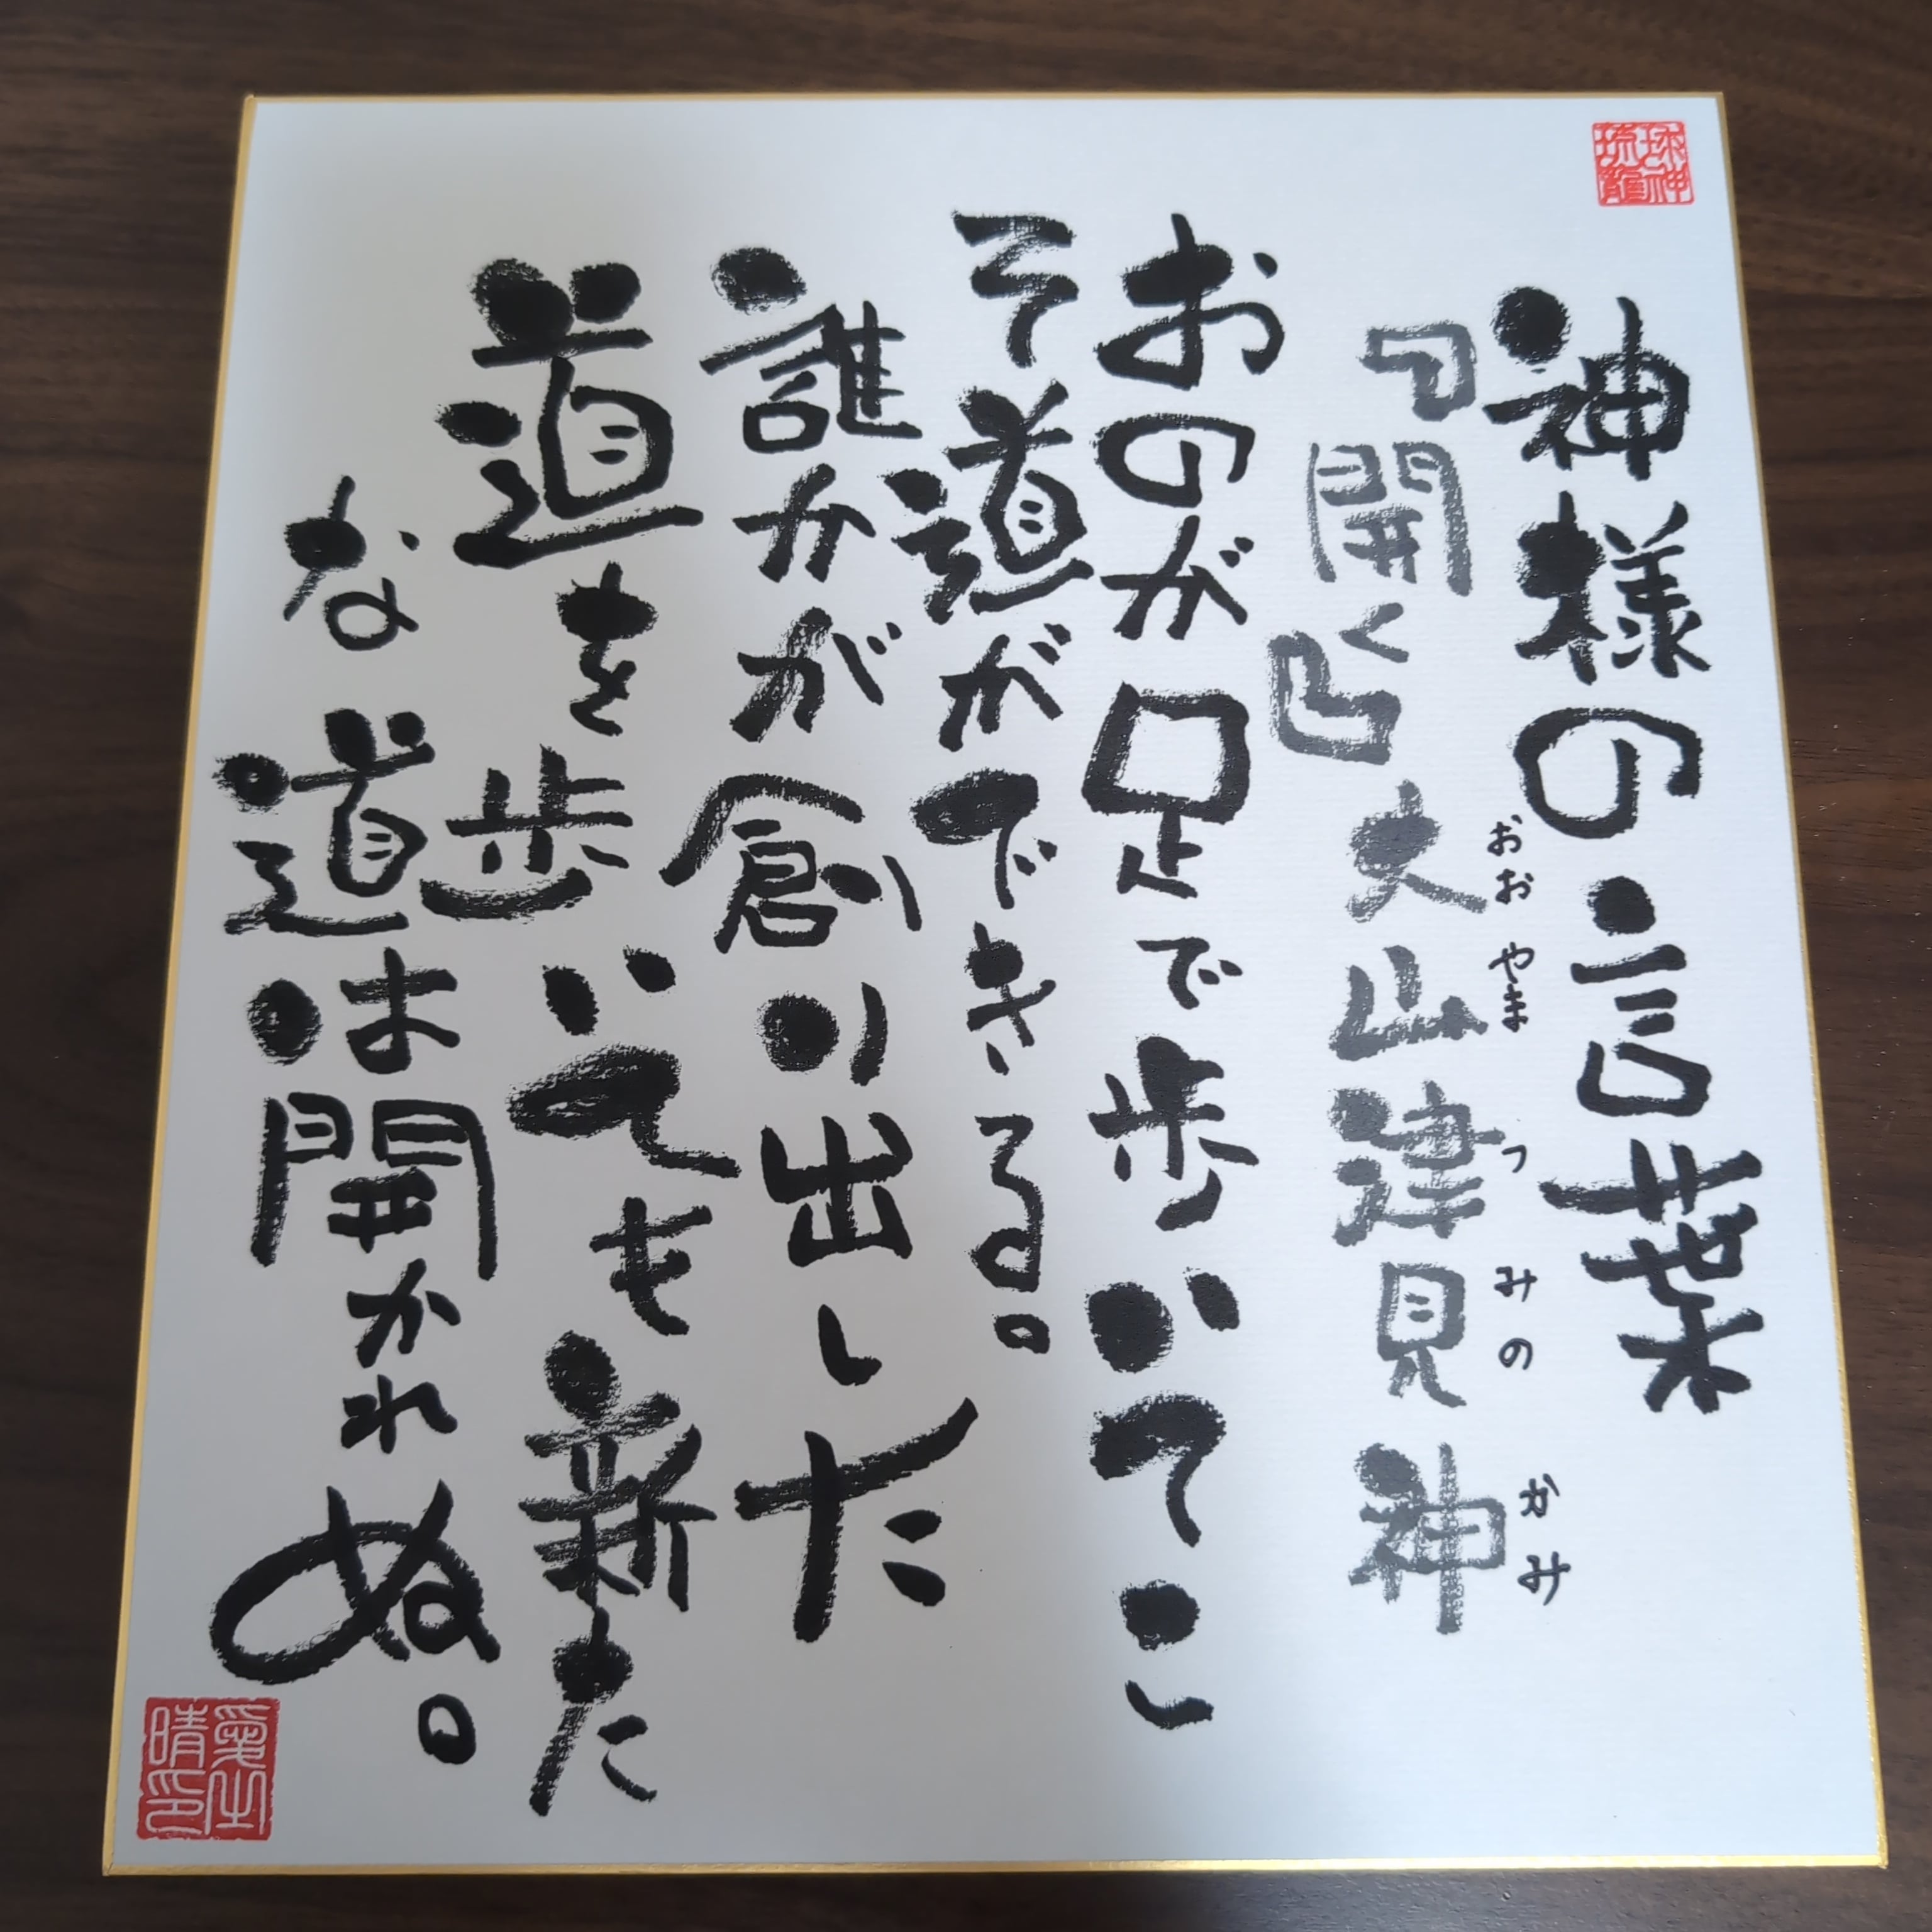 神様の言葉
『開く』大山津見神
おお やま つ みの かみ
おのが足で歩いてこ
そ道ができる。
誰かが創り出した
道を歩いても新た
な道は開かれぬ。